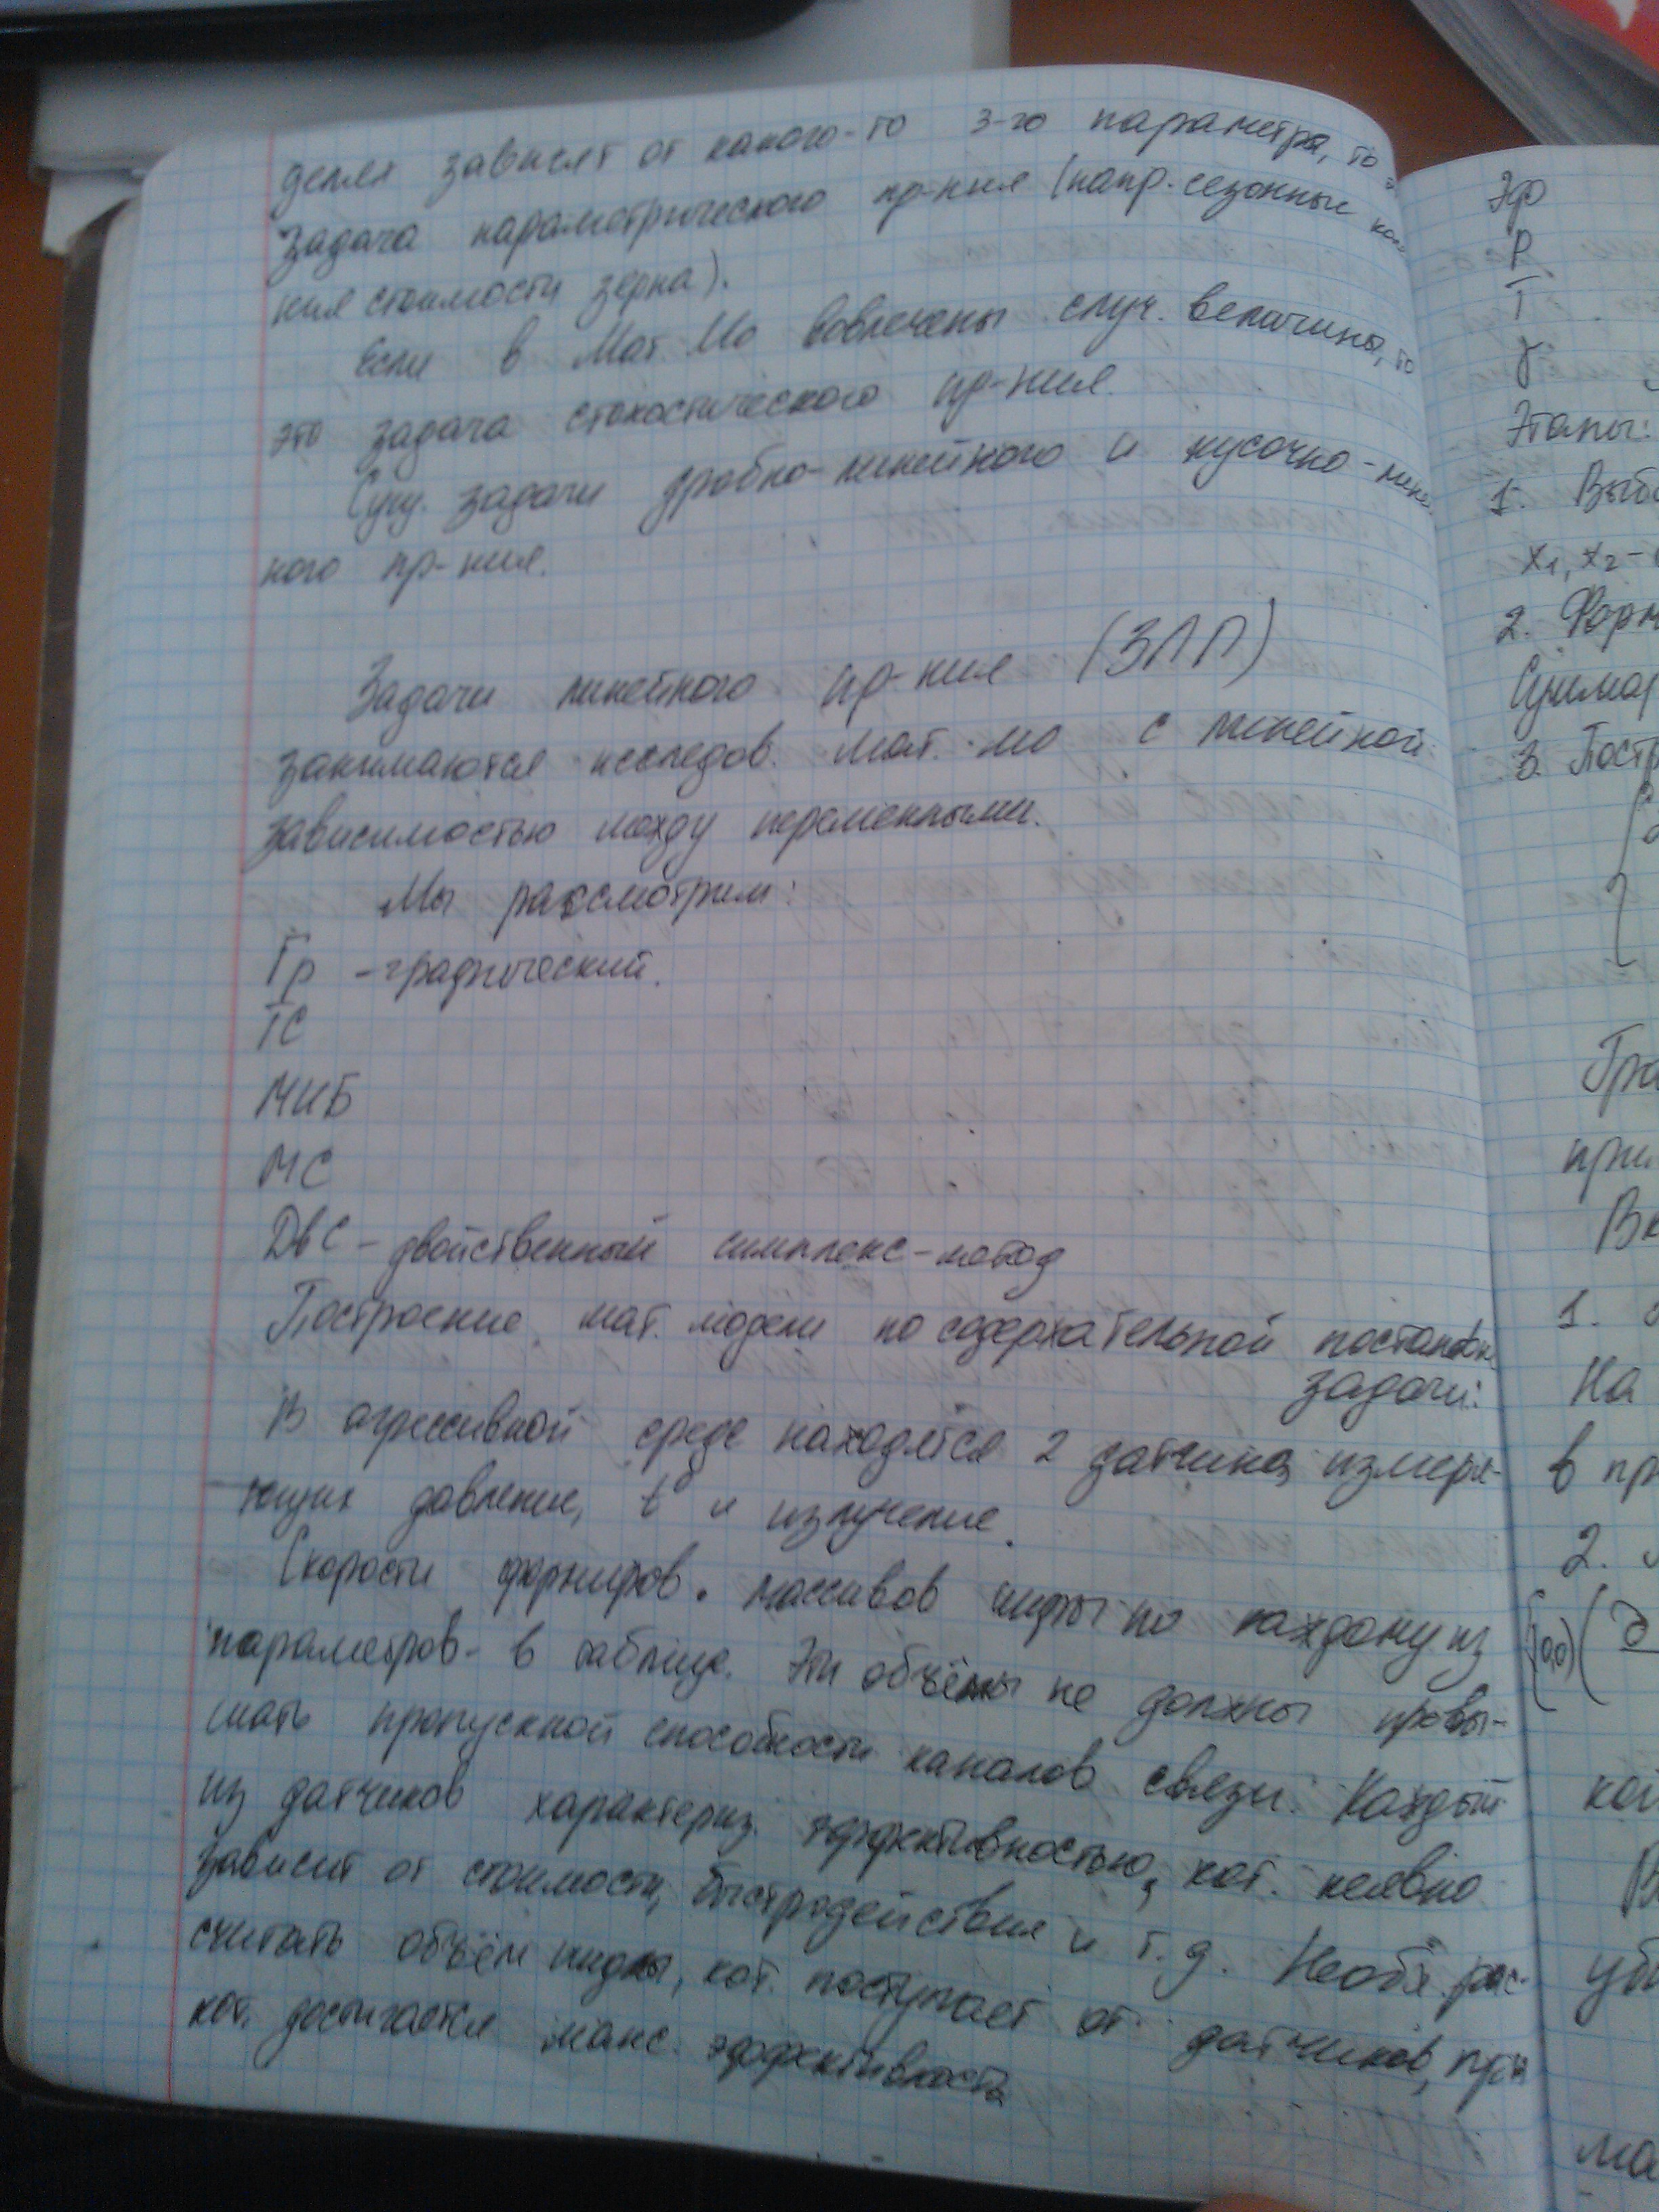 делях зависят от какого-то 3-го параметра, то
задача параметрического пр-ния (напр. сезонные
ния стоимости зерна).
Если в Мат. Мо вовлечены случ. величины, то
это задача стохастического пр-ния.
Сущ. задачи дробно-линейного и кусочно-линей
ного пр-ния.
Задачи линейного пр-ния (ЗЛП)
занимаются исследов. мат. мо с линейной
зависимостью между переменными.
Мы рассмотрим:
Гр - графический.
ТС
МИБ
МС
ДвС - двойственный симплекс-метод
Построение мат. модели по содержательной постановк
задачи:
В агрессивной среде находятся 2 датчика, измеря-
ющих давление, t° и излучение.
Скорости формиров. массивов инфы по каждому из
параметров - в таблице. Эти объёмы не должны превы-
шать пропускной способности каналов связи. Каждый
из датчиков характериз. эффективностью, кот. неявно
зависит от стоимости, быстродействия и т.д. Необх. рас-
считать объём инфы, кот. поступает от датчиков, при
кот. достигается макс. эффективность
Эф
P
T
γ
Этапы:
1. Выбо
x₁, x₂ -
2. Форм
Суммар
3. Постр
Гра
при
Вк
1.
На
в пр
2.
(0,0)
кой
В
уб
ма